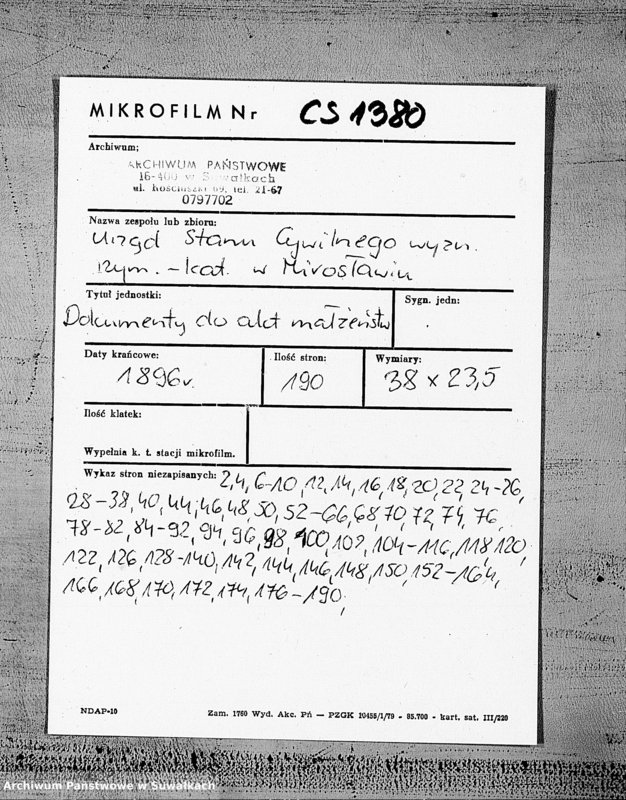 MIKROFILM Nr CS 1380
Archiwum:
ARCHIWUM PAŃSTWOWE
16-400 w Suwałkach
ul. Kościuszki 69, tel. 21-67
0797702
Nazwa zespołu lub zbioru:
Urząd Stanu Cywilnego wyzn.
rzym. - kat. w Mirosławiu
Tytuł jednostki:
Sygn. jedn:
Dokumenty do akt małżeństw
Daty krańcowe:
Ilość stron:
Wymiary:
1896r.
190
38 x 23,5
Ilość klatek:
Wypełnia k. t. stacji mikrofilm.
Wykaz stron niezapisanych: 2,4, 6-10, 12, 14, 16, 18, 20, 22, 24-26,
28-38, 40, 44, 46, 48, 50, 52-66, 68, 70, 72, 74, 76,
78-82, 84-92, 94, 96, 98, 100, 102, 104-116, 118, 120,
122, 126, 128-140, 142, 144, 146, 148, 150, 152-164,
166, 168, 170, 172, 174, 176-190,
NDAP-10
Zam. 1760 Wyd. Akc. Pń — PZGK 10455/1/79 - 85.700 - kart. sat. III/220
Archiwum Państwowe w Suwałkach